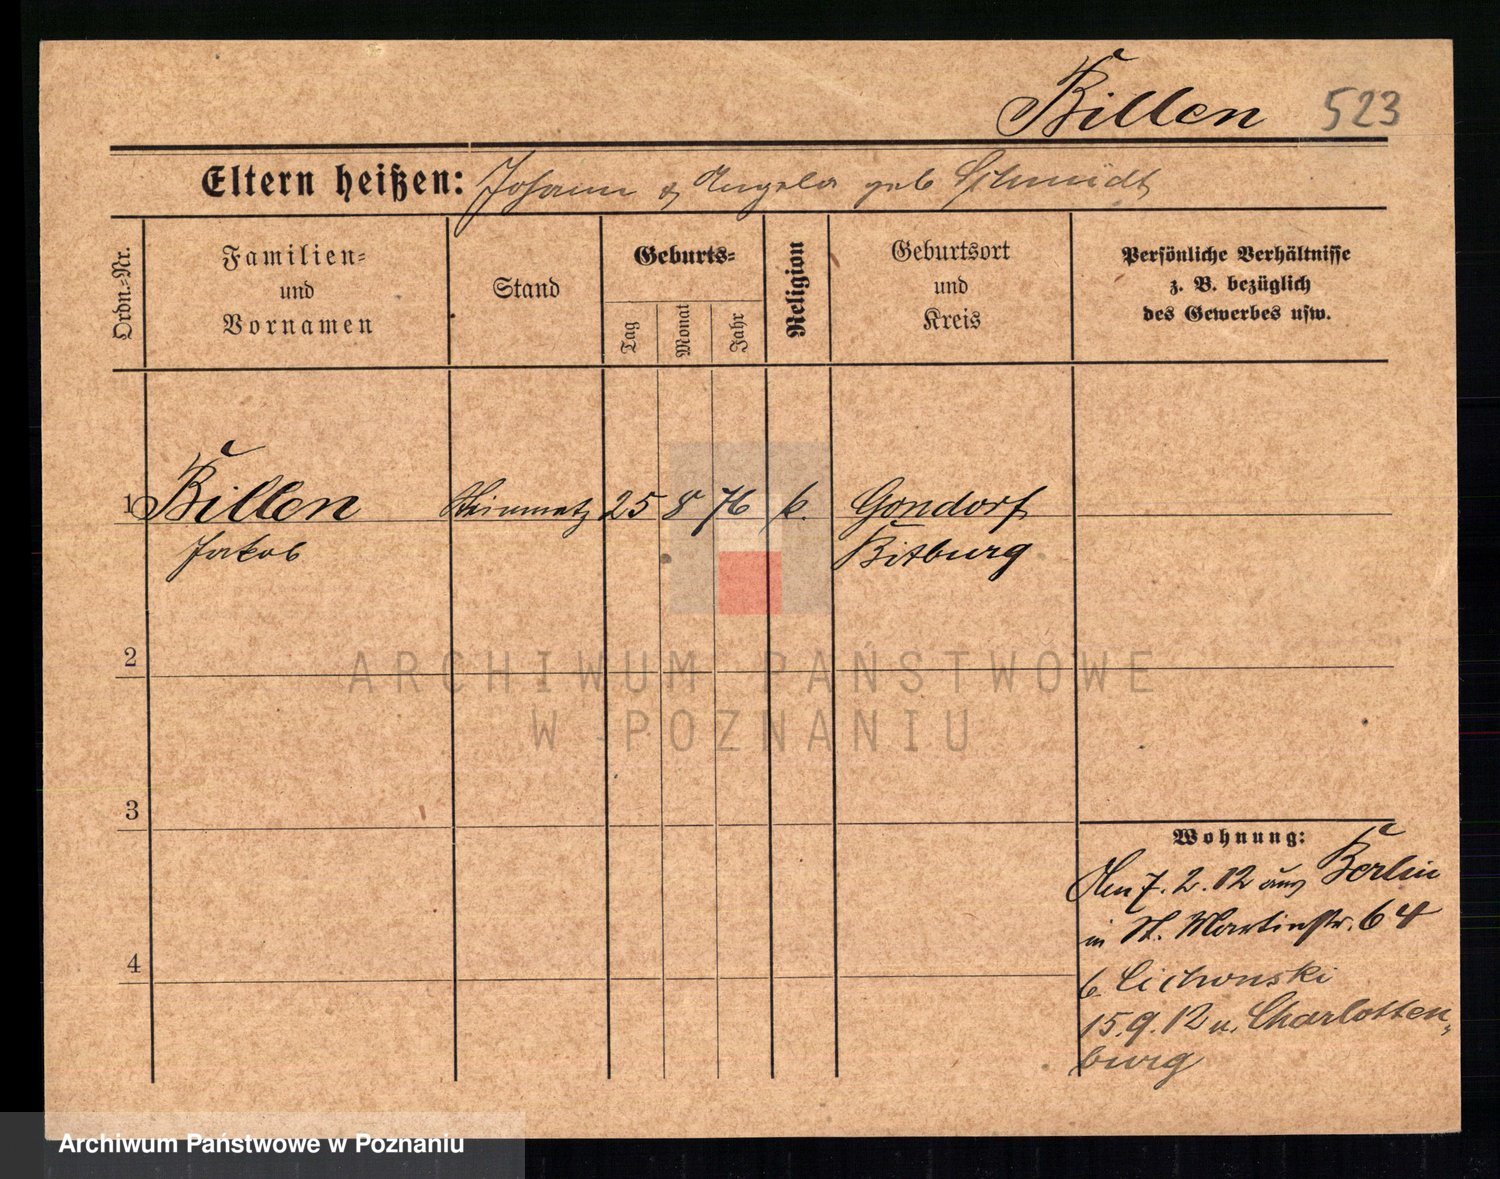 Billen 523
Eltern heißen: Johann & Angela geb Schmidt
Ordn.-Nr.
Familien-
und
Vornamen
Stand
Geburts-
Tag
Monat
Jahr
Religion
Geburtsort
und
Kreis
Persönliche Verhältnisse
z. B. bezüglich
des Gewerbes usw.
1 Billen 25 8 76 k. Gondorf
Jakob Bitburg
2
3
4
Wohnung:
Am 7. 2. 12 aus Berlin
in St. Martinstr. 64
b Cichonski
15. 9. 12 n. Charlotten-
burg
ARCHIWUM PAŃSTWOWE
W POZNANIU
Archiwum Państwowe w Poznaniu